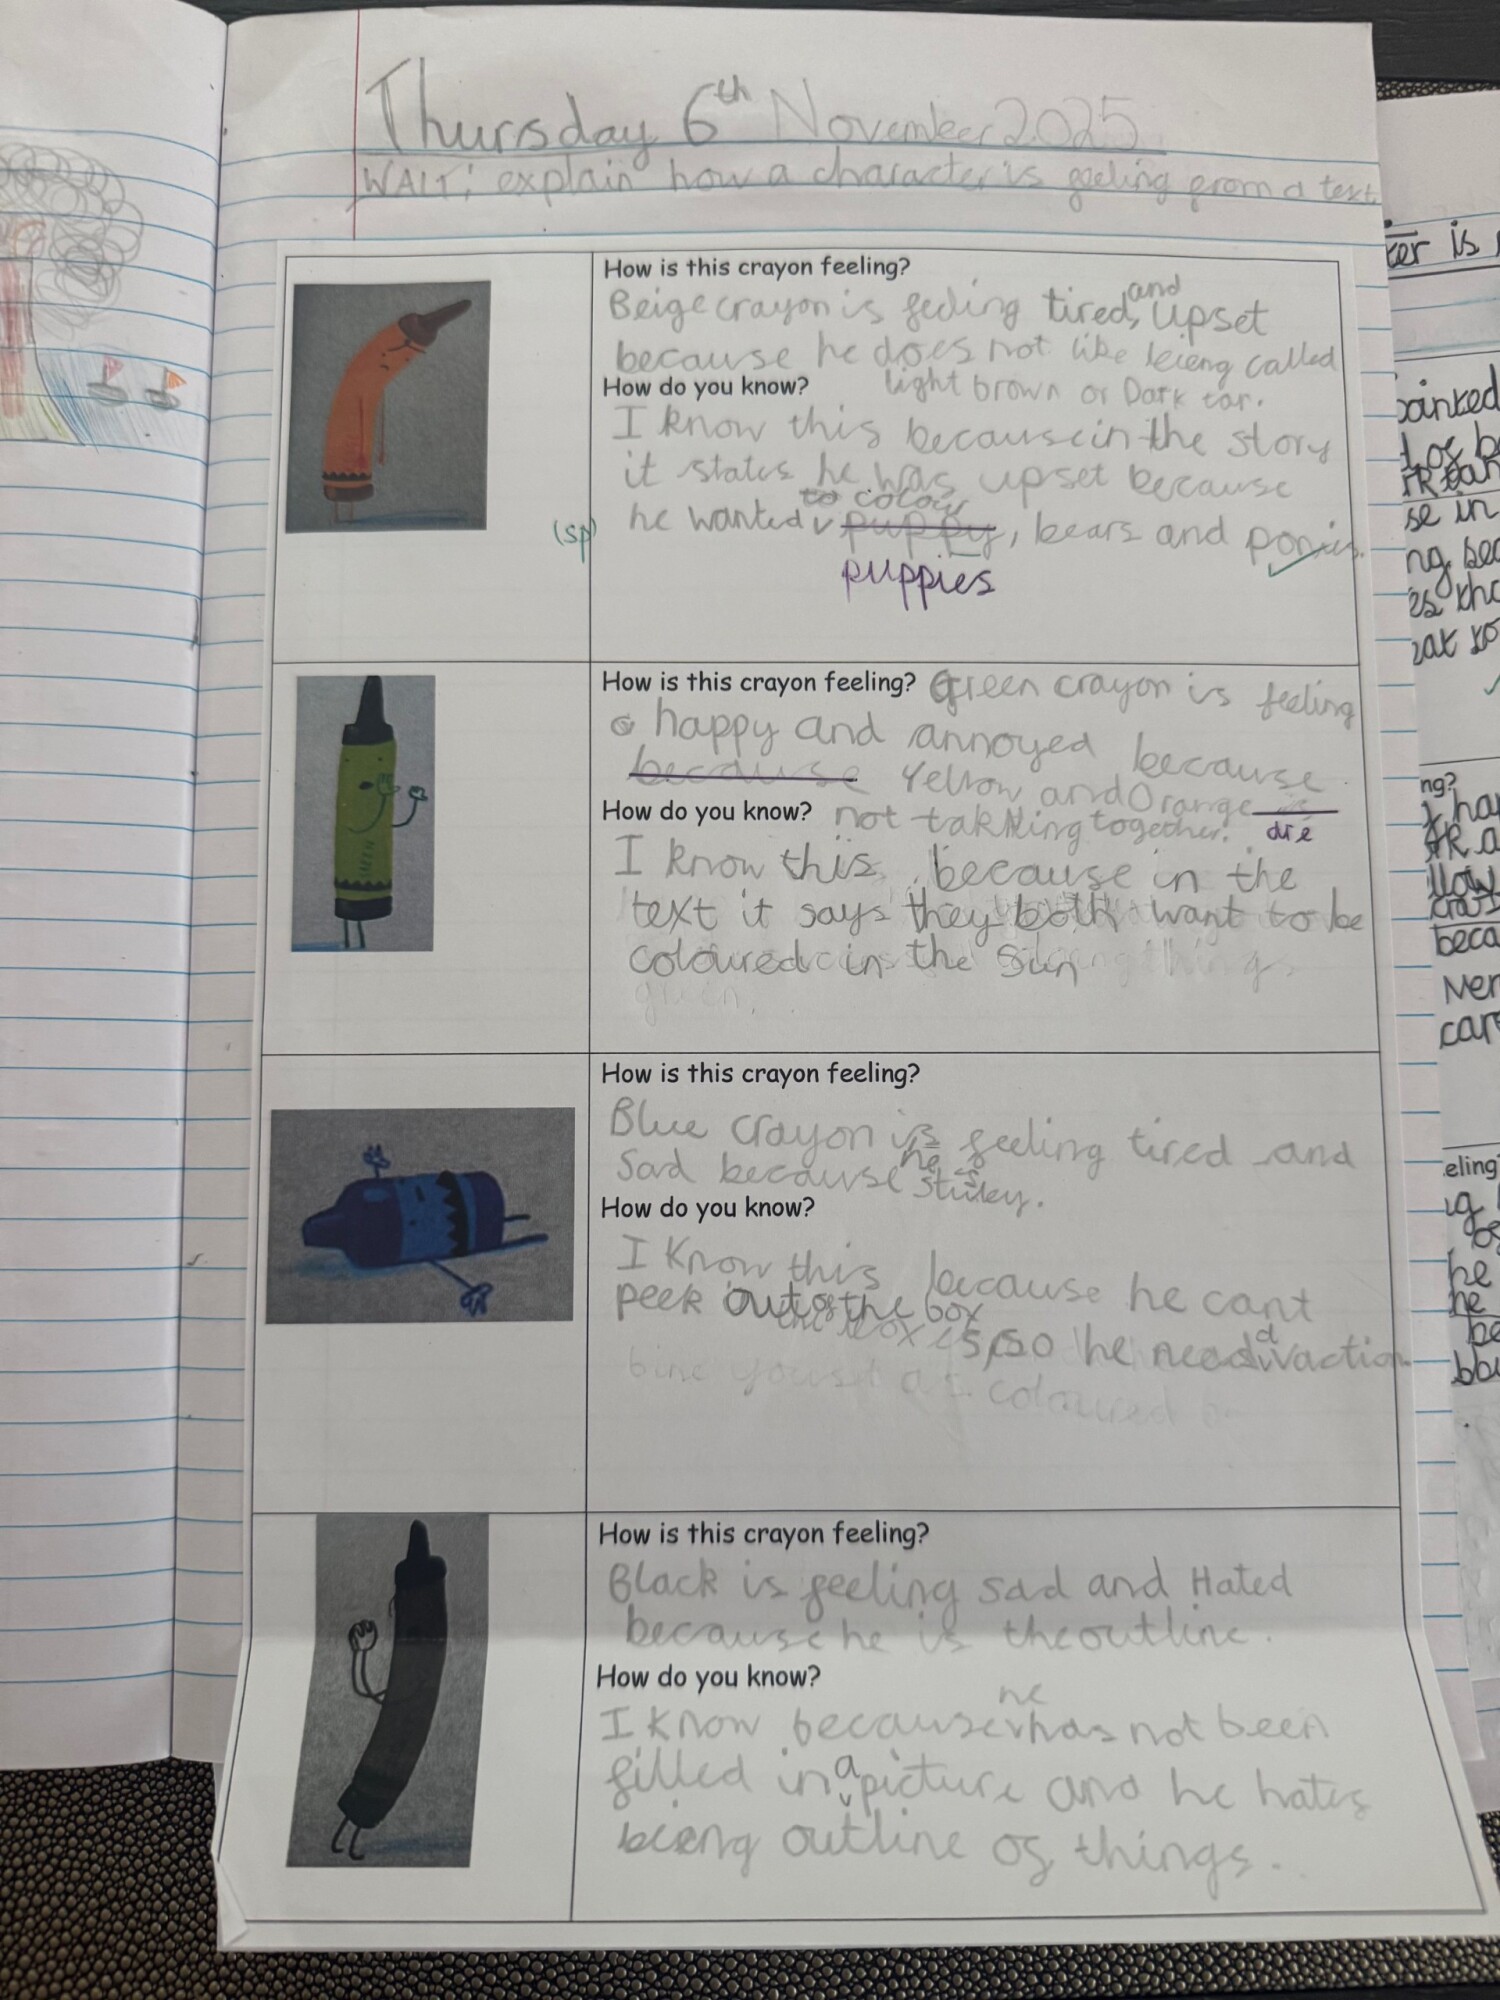 Thursday 6th November 2025
WALT: explain how a character is feeling from a text.
How is this crayon feeling?
Beige crayon is feeling tired, and upset
because he does not like beieng called
light brown or Dark tan.
How do you know?
I know this because in the story
it states he was upset because
he wanted to colour puppy, bears and ponies.
(sp)
puppies
How is this crayon feeling? Green crayon is feeling
happy and annoyed because
because Yellow and Orange
are
not talking together.
How do you know?
I know this because in the
text it says they both want to be
coloured in the sun
green.
How is this crayon feeling?
Blue crayon is feeling tired and
sad because he is
How do you know?
I know this because he cant
peek out of the box
so he need a vaction
coloured
How is this crayon feeling?
Black is feeling sad and Hated
because he is the outline.
How do you know?
I know because he has not been
filled in a picture and he hates
being outline of things.
ker is
ng?
beca
eling?
he